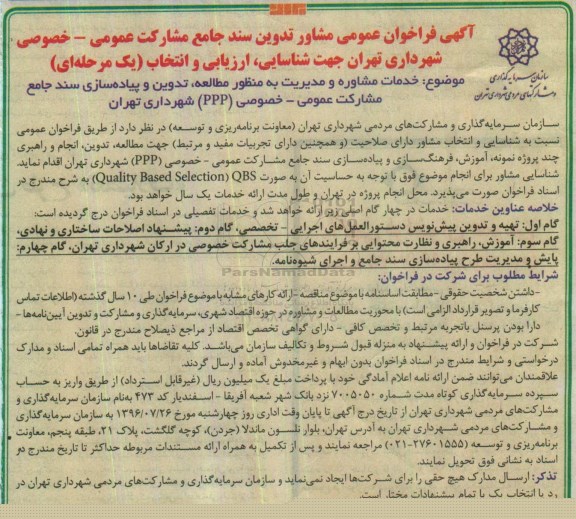 آگهی فراخوان عمومی مشاور تدوین سند جامع مشارکت عمومی – خصوصی
شهرداری تهران جهت شناسایی، ارزیابی و انتخاب (یک مرحله‌ای)
موضوع: خدمات مشاوره و مدیریت به منظور مطالعه، تدوین و پیاده‌سازی سند جامع
مشارکت عمومی – خصوصی (PPP) شهرداری تهران
سازمان سرمایه‌گذاری
و مشارکتهای مردمی شهرداری تهران
سازمان سرمایه‌گذاری و مشارکت‌های مردمی شهرداری تهران (معاونت برنامه‌ریزی و توسعه) در نظر دارد از طریق فراخوان عمومی
نسبت به شناسایی و انتخاب مشاور دارای صلاحیت (و همچنین دارای تجربیات مفید و مرتبط) جهت مطالعه، تدوین، انجام و راهبری
چند پروژه نمونه، آموزش، فرهنگ‌سازی و پیاده‌سازی سند جامع مشارکت عمومی - خصوصی (PPP) شهرداری تهران اقدام نماید.
شناسایی مشاور برای انجام موضوع فوق با توجه به حساسیت آن به صورت QBS (Quality Based Selection) به شرح مندرج در
اسناد فراخوان صورت می‌پذیرد. محل انجام پروژه در تهران و طول مدت ارائه خدمات یک سال خواهد بود.
خلاصه عناوین خدمات: خدمات در چهار گام اصلی زیر ارائه خواهد شد و خدمات تفصیلی در اسناد فراخوان درج گردیده است:
گام اول: تهیه و تدوین پیش‌نویس دستورالعمل‌های اجرایی – تخصصی، گام دوم: پیشنهاد اصلاحات ساختاری و نهادی،
گام سوم: آموزش، راهبری و نظارت محتوایی بر فرایندهای جلب مشارکت خصوصی در ارکان شهرداری تهران، گام چهارم:
پایش و مدیریت طرح پیاده‌سازی سند جامع و اجرای شیوه‌نامه.
ParsNamadData
شرایط مطلوب برای شرکت در فراخوان:
-داشتن شخصیت حقوقی - مطابقت اساسنامه با موضوع مناقصه - ارائه کارهای مشابه با موضوع فراخوان طی ۱۰ سال گذشته (اطلاعات تماس
کارفرما و تصویر قرارداد الزامی است) با محوریت مطالعات و مشاوره در حوزه اقتصاد شهری، سرمایه‌گذاری و مشارکت و تدوین آیین‌نامه‌ها -
دارا بودن پرسنل باتجربه مرتبط و تخصص کافی - دارای گواهی تخصص اقتصاد از مراجع ذیصلاح مندرج در قانون.
شرکت در فراخوان و ارائه پیشنهاد به منزله قبول شروط و تکالیف سازمان می‌باشد. کلیه تقاضاها باید همراه تمامی اسناد و مدارک
درخواستی و شرایط مندرج در اسناد فراخوان بدون ابهام و غیرمخدوش آماده و ارسال گردند.
علاقمندان می‌توانند ضمن ارائه نامه اعلام آمادگی خود با پرداخت مبلغ یک میلیون ریال (غیرقابل استرداد) از طریق واریز به حساب
سپرده سرمایه‌گذاری کوتاه مدت شماره ۷۰۰۵۰۵۰ نزد بانک شهر شعبه آفریقا - اسفندیار کد ۴۷۳ به‌نام سازمان سرمایه‌گذاری و
مشارکت‌های مردمی شهرداری تهران از تاریخ درج آگهی تا پایان وقت اداری روز چهارشنبه مورخ ۱۳۹۶/۰۷/۲۶ به سازمان سرمایه‌گذاری
و مشارکت‌های مردمی شهرداری تهران به آدرس تهران، بلوار نلسون ماندلا (جردن)، کوچه گلگشت، پلاک ۲۱، طبقه پنجم، معاونت
برنامه‌ریزی و توسعه (۲۷۶۰۱۵۵۵-۰۲۱) مراجعه نمایند و پس از تکمیل به همراه ارائه مستندات مربوطه حداکثر تا تاریخ مندرج در
اسناد به نشانی فوق تحویل نمایند.
تذکر: ارسال مدارک هیچ حقی را برای شرکت‌ها ایجاد نمی‌نماید و سازمان سرمایه‌گذاری و مشارکت‌های مردمی شهرداری تهران در
رد یا انتخاب یک یا تمام پیشنهادات مختار است.